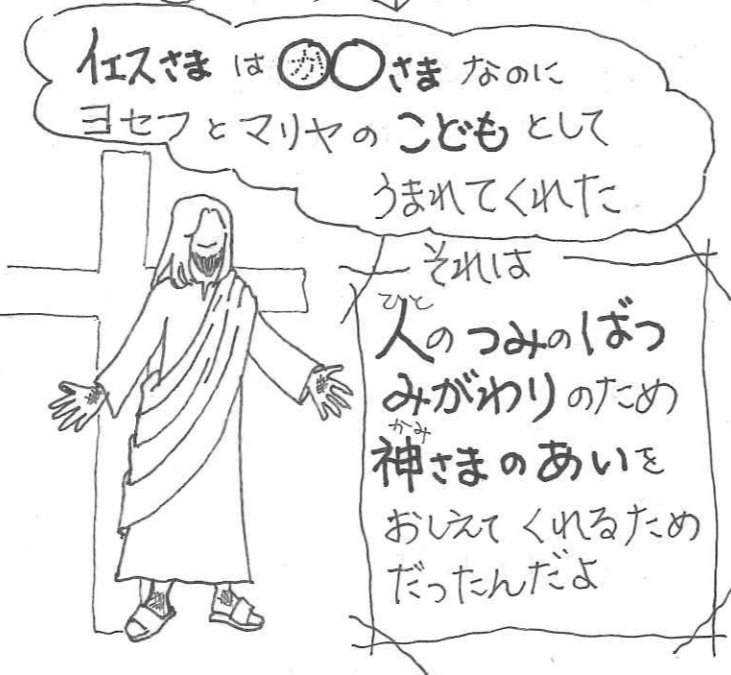 イエスさま は ◯◯さま なのに
ヨセフとマリヤの こども として
うまれてくれた
それは
ひと
人のつみのばつ
みがわりのため
かみ
神さまのあいを
おしえて くれるため
だったんだよ